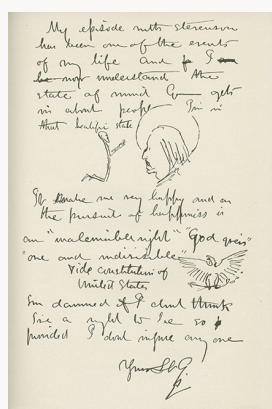 My episode with Stevenson
has been one of the events
of my life and I
now understand the
state of mind gets
in about people I'm in
that beatific state
make me very happy and as
the pursuit of happiness is
an "inalienable right" "God given"
"one and indivisible"
vide constitution of
United States
I'm damned if I dont think
I've a right to be so
provided I dont injure any one
Yours